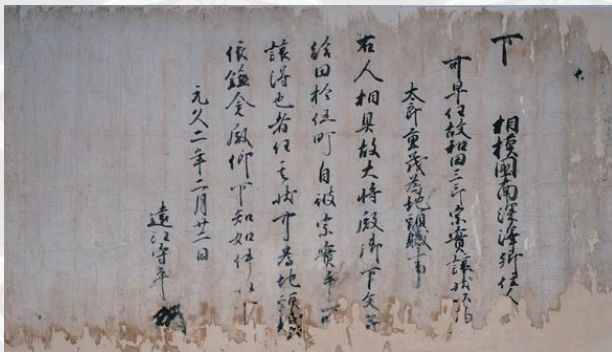 下　相模國南深澤郷住人
可早任故和田三郎宗實譲状以高井
太郎重茂為地頭職事
右人相具故大将殿御下文等
給田拾伍町自彼宗實手所
譲得也者任其状可為地頭職
依鎌倉殿仰下知如件以下
元久二年二月廿二日
遠江守平